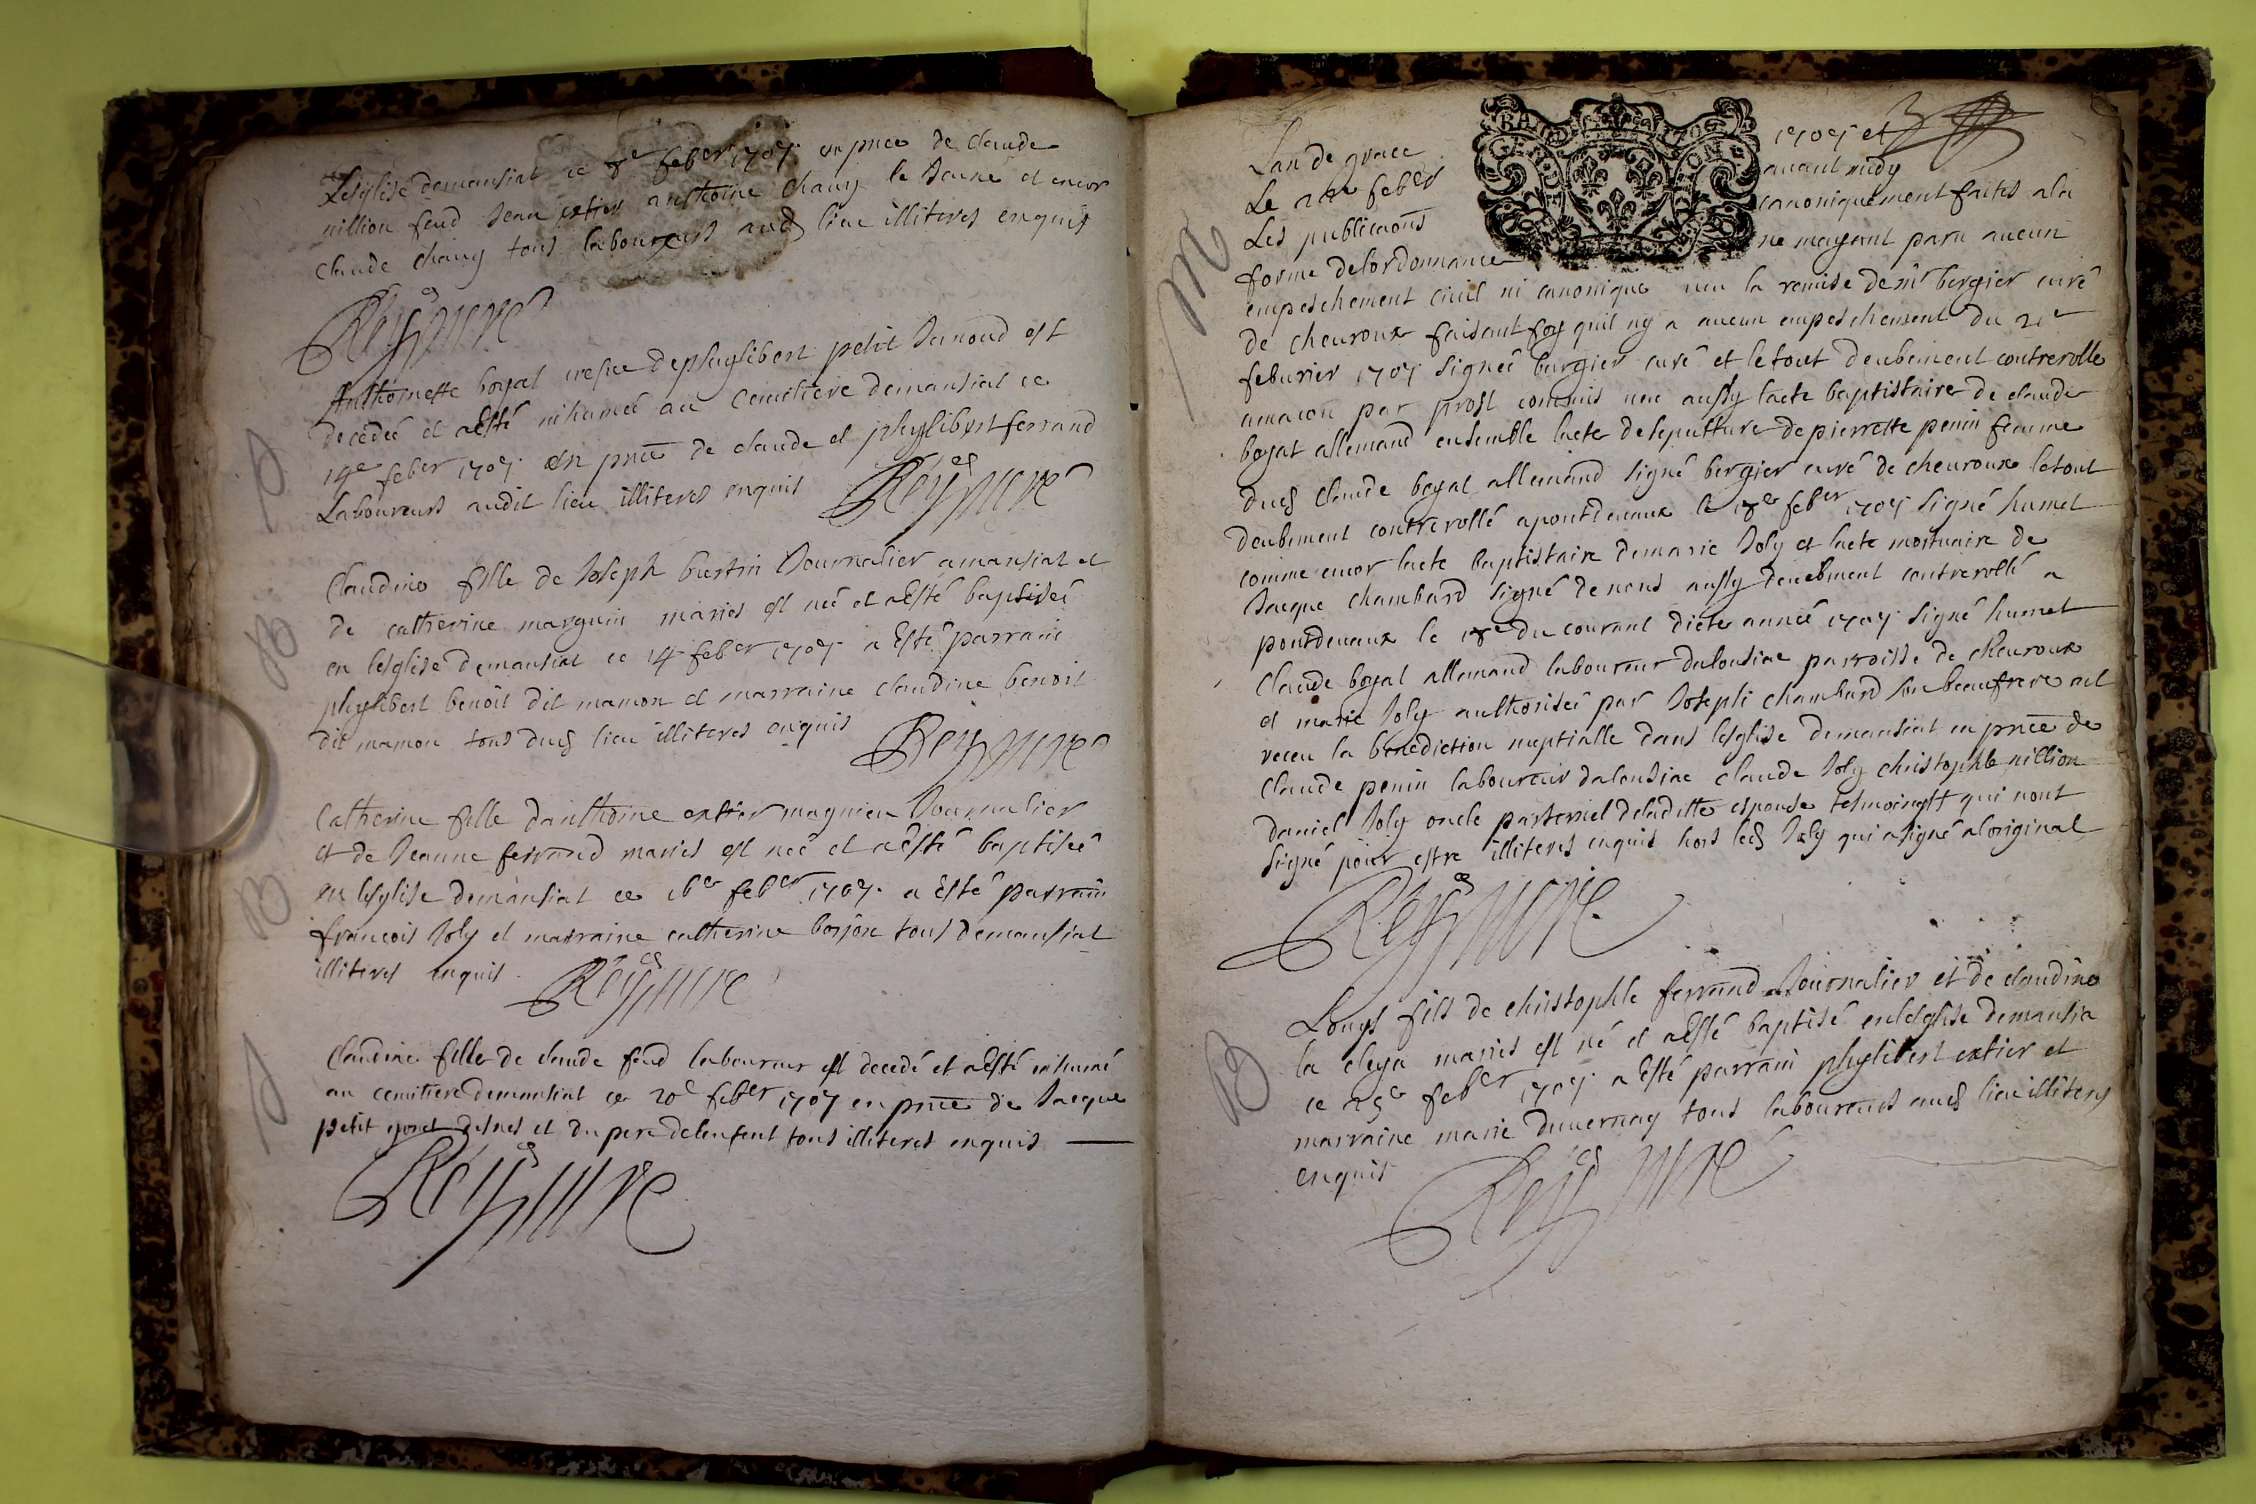 Lesglise demansiat ce 8e feber 1707 en pnce de claude
nillion feud Jean extier anthoine Chavy le Jeune et encor
Claude Chavy tous laboureurs aud lieu illiteres enquis
Rey curé
Anthoinette boyat vefve de phylibert petit Janoud est
decedée et a Esté inhumée au Cemitiere demansiat ce
19e feber 1707 en pnce de claude et phylibert ferrand
Laboureurs audit lieu illiteres enquis Rey curé
D
Claudine fille de Joseph burtin Journalier amansiat et
de catherine marguin mariés est née et a Esté baptisée
B
en lesglise demansiat ce 14 feber 1707 a Esté parrain
phylibert benoit dit mamon et marraine claudine benoit
dit mamon tous dud lieu illiteres enquis Rey curé
Catherine fille danthoine extier magnien Journalier
et de Jeanne ferrand mariés est née et a Esté baptisée
B
en lesglise demansiat ce 16e feber 1707 a Esté parrain
francois Joly et marraine catherine borjon tous demansiat
illiteres enquis Rey curé
Claudine fille de claude feud laboureur est decedé et a Esté inhumé
D
au cemitiere demansiat ce 20e feber 1707 en pnce de Jacque
petit et du pere delenfent tous illiteres enquis
Rey curé
Lan de grace 1707 et
Le feber avant midy
Les publicaons canoniquement faites a la
M
forme delordonnance ne mayant paru aucun
empeschement civil ni canonique veu la remise de mr bergier curé
de chevroux faisant foy quil ny a aucun empeschement du 21e
febvrier 1707 signée bergier curé et le tout deubement contrerollé
amacon par prost commis veu aussy lacte baptistaire de claude
boyat allemand ensemble lacte desepulture de pierrette penin femme
dud Claude boyat allemand signé bergier curé de chevroux le tout
deubement contrerollé apontdevaux le feber 1707 signé humet
comme encor lacte baptistaire demarie Joly et lacte mortuaire de
Jacque chambard signé de nous aussy deuebment contrerollé a
pontdevaux le du courant dicte année 1707 signé humet
Claude boyat allemand laboureur dalousiae parroisse de chevroux
et marie Joly authorisée par Joseph chambard son beaufrere ont
receu la benediction nuptialle dans lesglise demansiat en pnce de
Claude penin laboureur dalousiae claude Joly christophle nillion
daniel Joly oncle parternel deladitte espouse tesmoings qui nont
signé pour estre illiteres enquis hors led Joly qui a signé aloriginal
Rey curé
Louys fils de christophle ferrand Journalier et de claudine
la cleya mariés est né et a Esté baptisé enlesglise demansia
B
ce 25e feber 1707 a Esté parrain phylibert extier et
marraine marie duvernay tous laboureurs aud lieu illiteres
enquis Rey curé